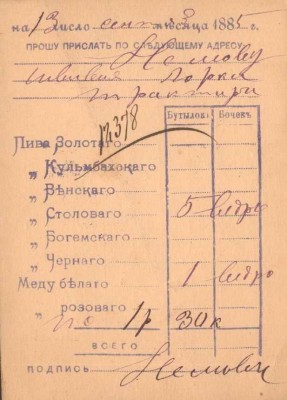 на 13 число сент. мѣсяца 1885 г.
ПРОШУ ПРИСЛАТЬ ПО СЛѢДУЮЩЕМУ АДРЕСУ
трактиръ
Бутылок. Бочек.
№ 378
Пива Золотаго
„ Кульмбахскаго
„ Вѣнскаго
„ Столоваго 5 ведръ
„ Богемскаго
„ Чернаго 1 ведро
Меду бѣлаго
„ розоваго
по 1 р 30 к
ВСЕГО
ПОДПИСЬ